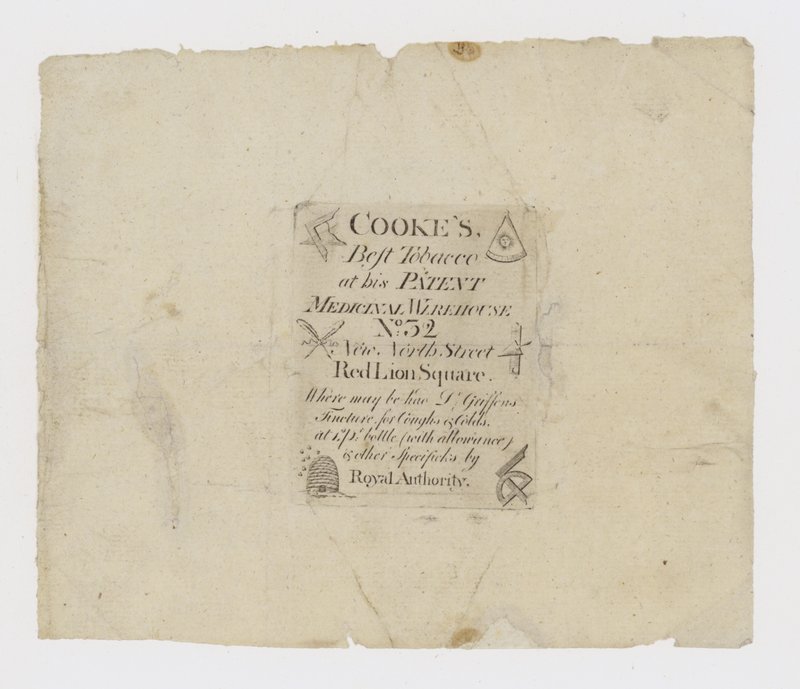 COOKE'S,
Beſt Tobacco
at his PATENT
MEDICINAL WAREHOUSE
No. 32
New North Street
Red Lion Square.
Where may be had Dr. Griffens
Tincture, for Coughs & Colds,
at 1s. pr. bottle (with allowance)
& other Specificks by
Royal Authority.